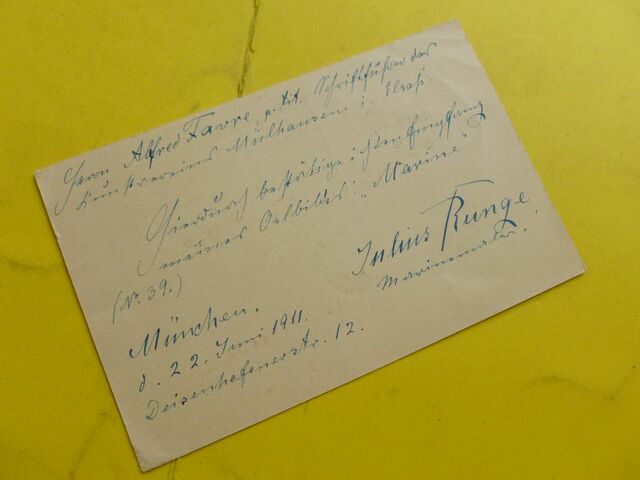 Herrn Alfred Favre, p. tit. Schriftführer des
Kunstvereins Mülhausen i. Elsaß.
Hierdurch bestätige ich den Empfang
meines Oelbildes: „Marine“
(No. 39.)
Julius Runge,
Marinemaler.
München,
d. 22. Juni 1911.
Deisenhofenerstr. 12.